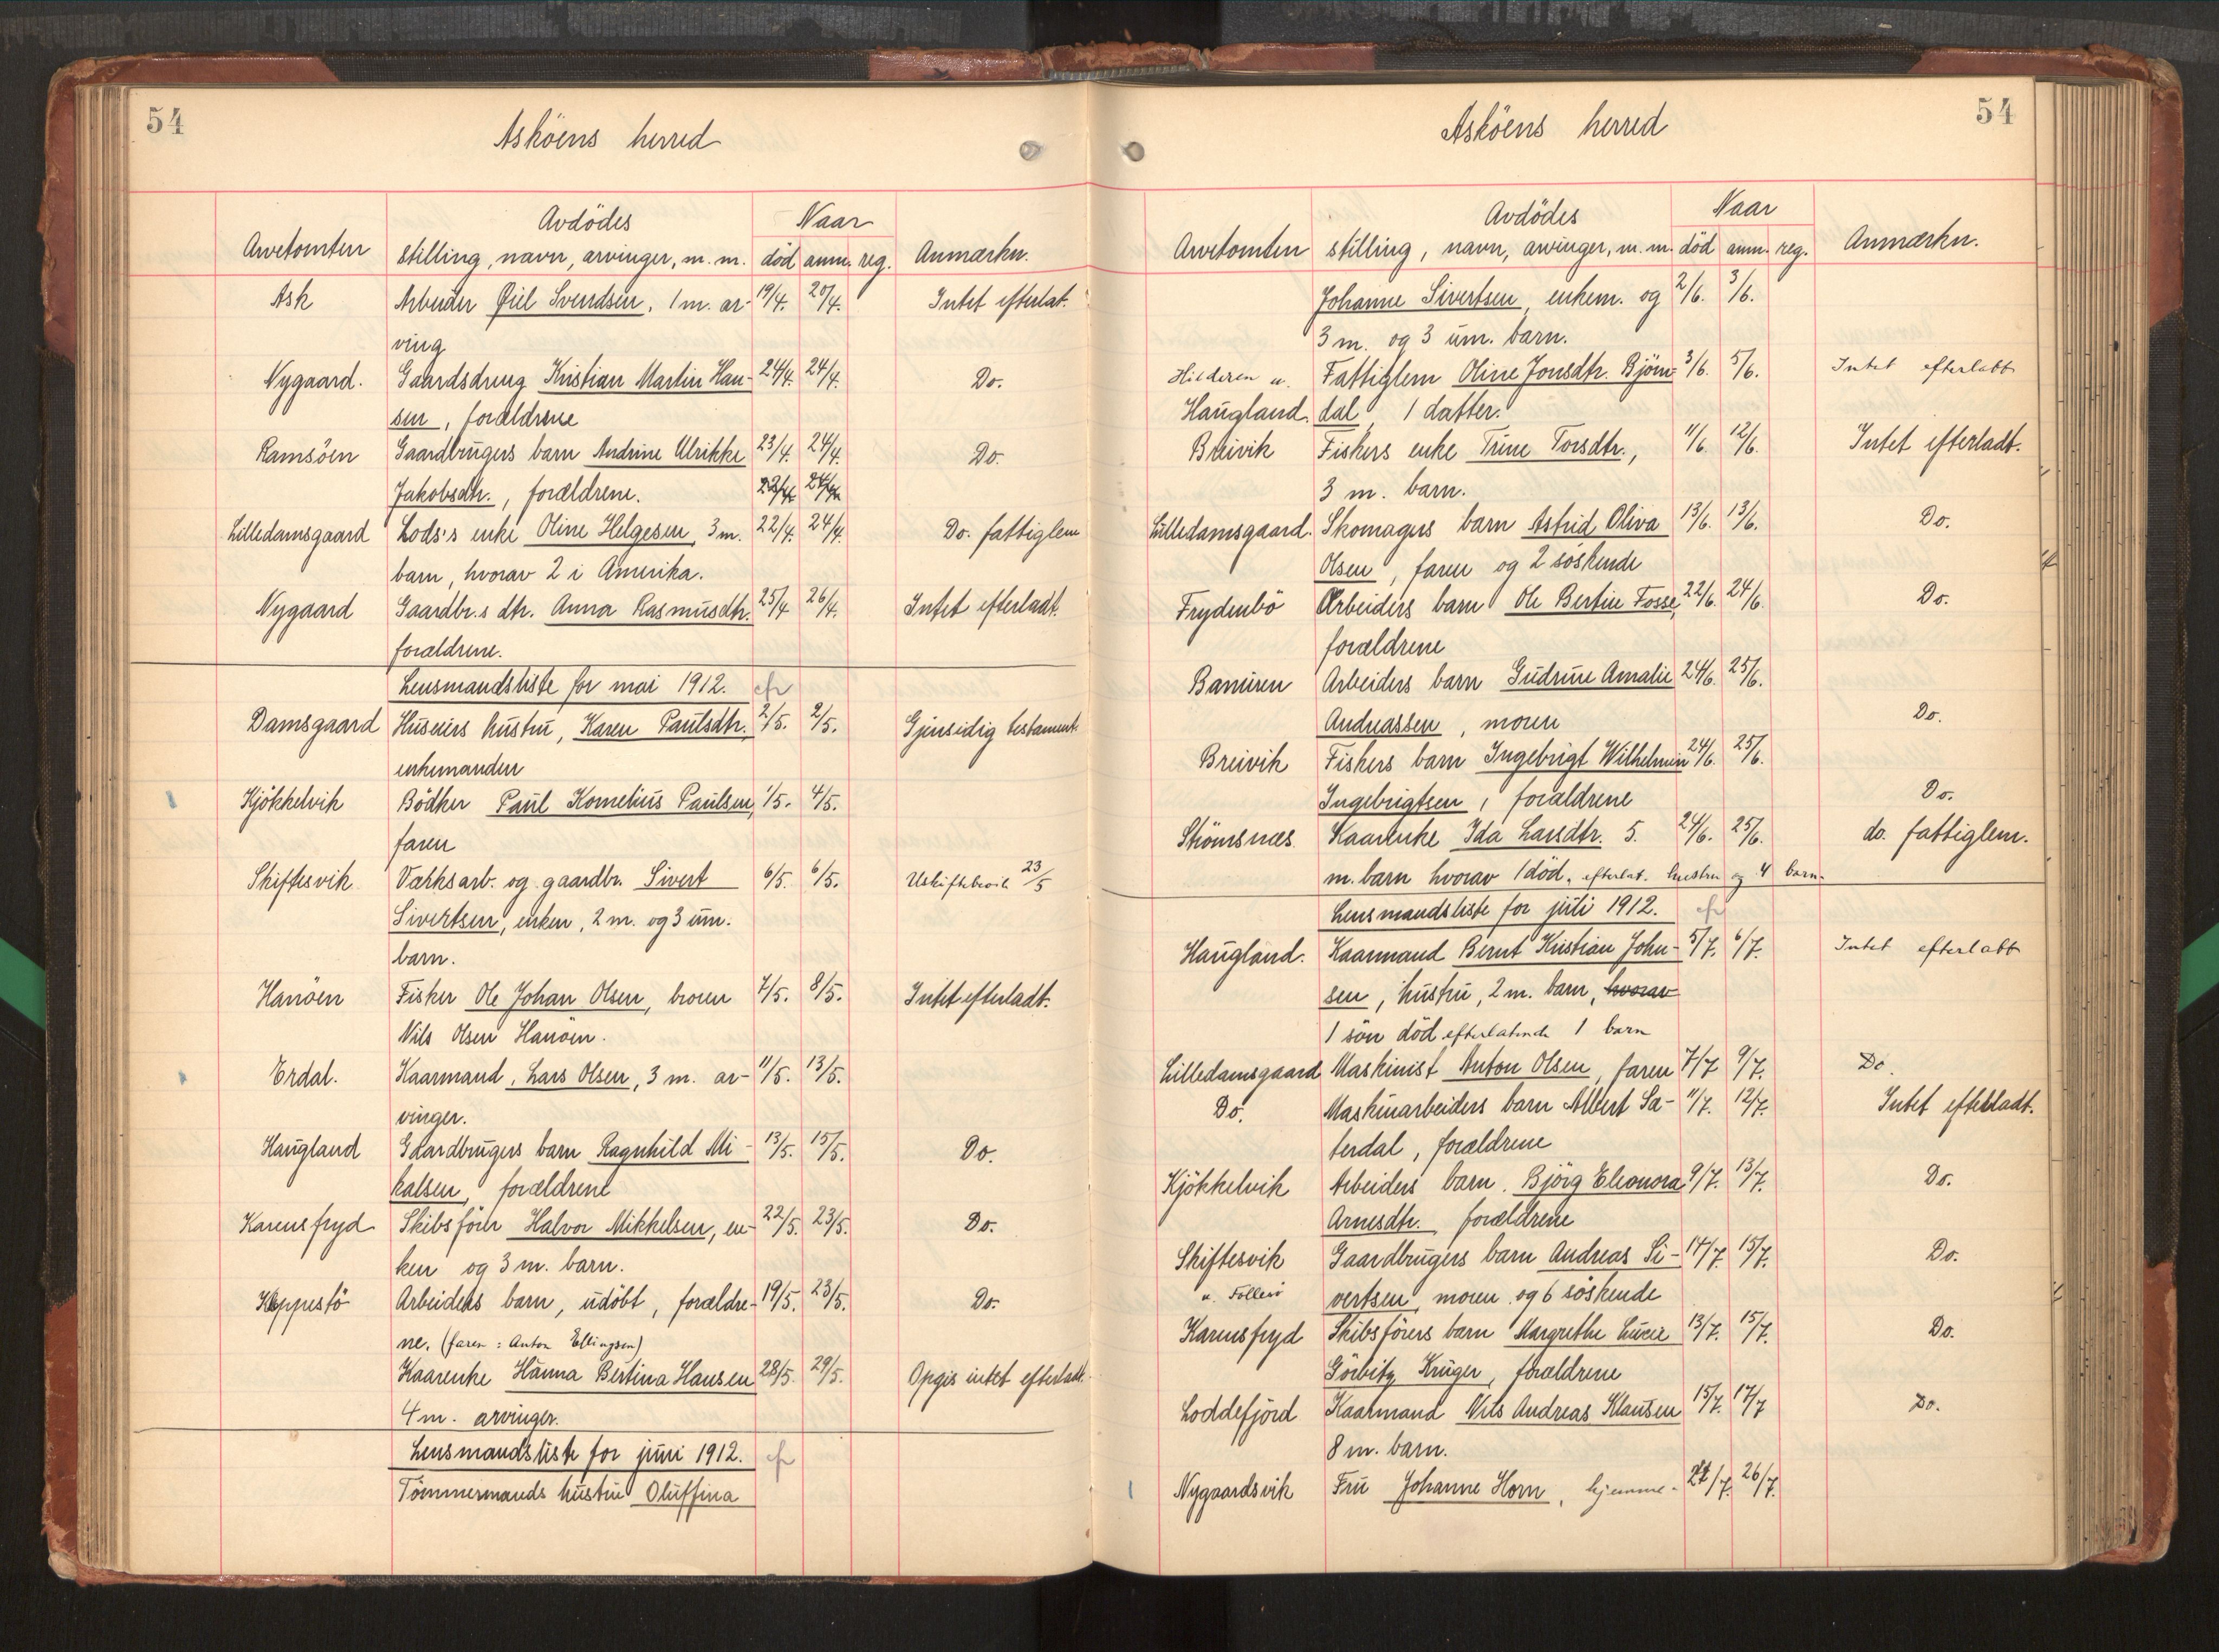 54
Asköens herred
Avdödes Naar
Arvetomten stilling, navn, arvinger, m. m. död anm. reg. Anmærkn.
Ask Arbeider Øiel Svendsen, 1 m. ar- 19/4. 20/4. Intet efterlat.
ving
Nygaard. Gaardsdreng Kristian Martin Han- 24/4. 24/4. Do.
sen, forældrene
Ramsöen Gaardbrugers barn Andrine Ulrikke 23/4. 24/4. Do.
Jakobsdtr., forældrene. 23/4 24/4
Lilledamsgaard Lods's enke Oline Helgesen, 3 m. 22/4. 24/4. Do. fattiglem
barn, hvorav 2 i Amerika.
Nygaard Gaardbr.s dtr. Anna Rasmusdtr. 25/4 26/4. Intet efterladt.
forældrene.
Lensmandsliste for mai 1912.
Damsgaard Huseiers hustru, Karen Paulsdtr. 2/5. 2/5. Gjensidig testament.
enkemanden
Kjökkelvik Bödker Paul Kornelius Paulsen, 1/5. 4/5.
faren
Skiftesvik Værksarb. og gaardbr. Sivert 6/5. 6/5. Uskiftebevil. 23/5
Sivertsen, enken, 2 m. og 3 um.
barn.
Hanöen Fisker Ole Johan Olsen, broren 7/5. 8/5. Intet efterladt.
Nils Olsen Hanöen.
Erdal. Kaarmand, Lars Olsen, 3 m. ar- 11/5. 13/5.
vinger.
Haugland Gaardbrugers barn Ragnhild Mi- 13/5. 15/5. Do.
kalsen, forældrene
Karensfryd Skibsförer Halvor Mikkelsen, en- 22/5. 23/5. Do.
ken og 3 m. barn.
Kleppestö Arbeiders barn, udöbt, forældre- 19/5. 23/5. Do.
ne. (faren: Anton Ellingsen)
Kaarenke Hanna Bertina Hansen 28/5. 29/5. Opgis intet efterladt.
4 m. arvinger.
Lensmandsliste for juni 1912.
Tömmermands hustru Oluffina
54
Asköens herred
Avdödes Naar
Arvetomten stilling, navn, arvinger, m. m. död anm. reg. Anmærkn.
Johanne Sivertsen, enkem. og 2/6. 3/6.
3 m. og 3 um. barn.
Hilderen u. Fattiglem Oline Jonsdtr. Björn- 3/6. 5/6. Intet efterladt
Haugland. dal, 1 datter.
Breivik Fiskers enke Trine Torsdtr., 11/6. 12/6. Intet efterladt.
3 m. barn.
Lilledamsgaard. Skomagers barn Astrid Oliva 13/6. 13/6. Do.
Olsen, faren og 2 söskende
Frydenbö Arbeiders barn Ole Bertin Fosse, 22/6. 24/6. Do.
forældrene
Banuren Arbeiders barn Gudrun Amalie 24/6. 25/6.
Andreassen, moren Do.
Breivik Fiskers barn Ingebrigt Wilhelmin 24/6. 25/6.
Ingebrigtsen, forældrene Do.
Strömsnæs Kaarenke Ida Larsdtr. 5. 24/6. 25/6. do. fattiglem.
m. barn hvorav 1 död, efterlat. hustru og 4 barn.
Lensmandsliste for juli 1912.
Haugland. Kaarmand Bernt Kristian John- 5/7. 6/7. Intet efterladt
sen, hustru, 2 m. barn, hvorav
1 sön död efterlatende 1 barn
Lilledamsgaard Maskinist Anton Olsen, faren 7/7 9/7. Do.
Do. Maskinarbeiders barn Albert Sa- 11/7. 12/7. Intet efterladt.
terdal, forældrene
Kjökkelvik Arbeiders barn. Björg Eleonora 9/7. 13/7. Do.
Arnesdtr. forældrene
Skiftesvik Gaardbrugers barn Andreas Si- 14/7. 15/7. Do.
u. Follesö vertsen, moren og 6 söskende
Karensfryd Skibsförers barn Margrethe Lucie 13/7. 15/7. Do.
Görbitz Krüger, forældrene
Loddefjord Kaarmand Nils Andreas Klausen 15/7. 17/7 Do.
8 m. barn.
Nygaardsvik Fru Johanne Horn, hjemme- 24/7. 26/7.